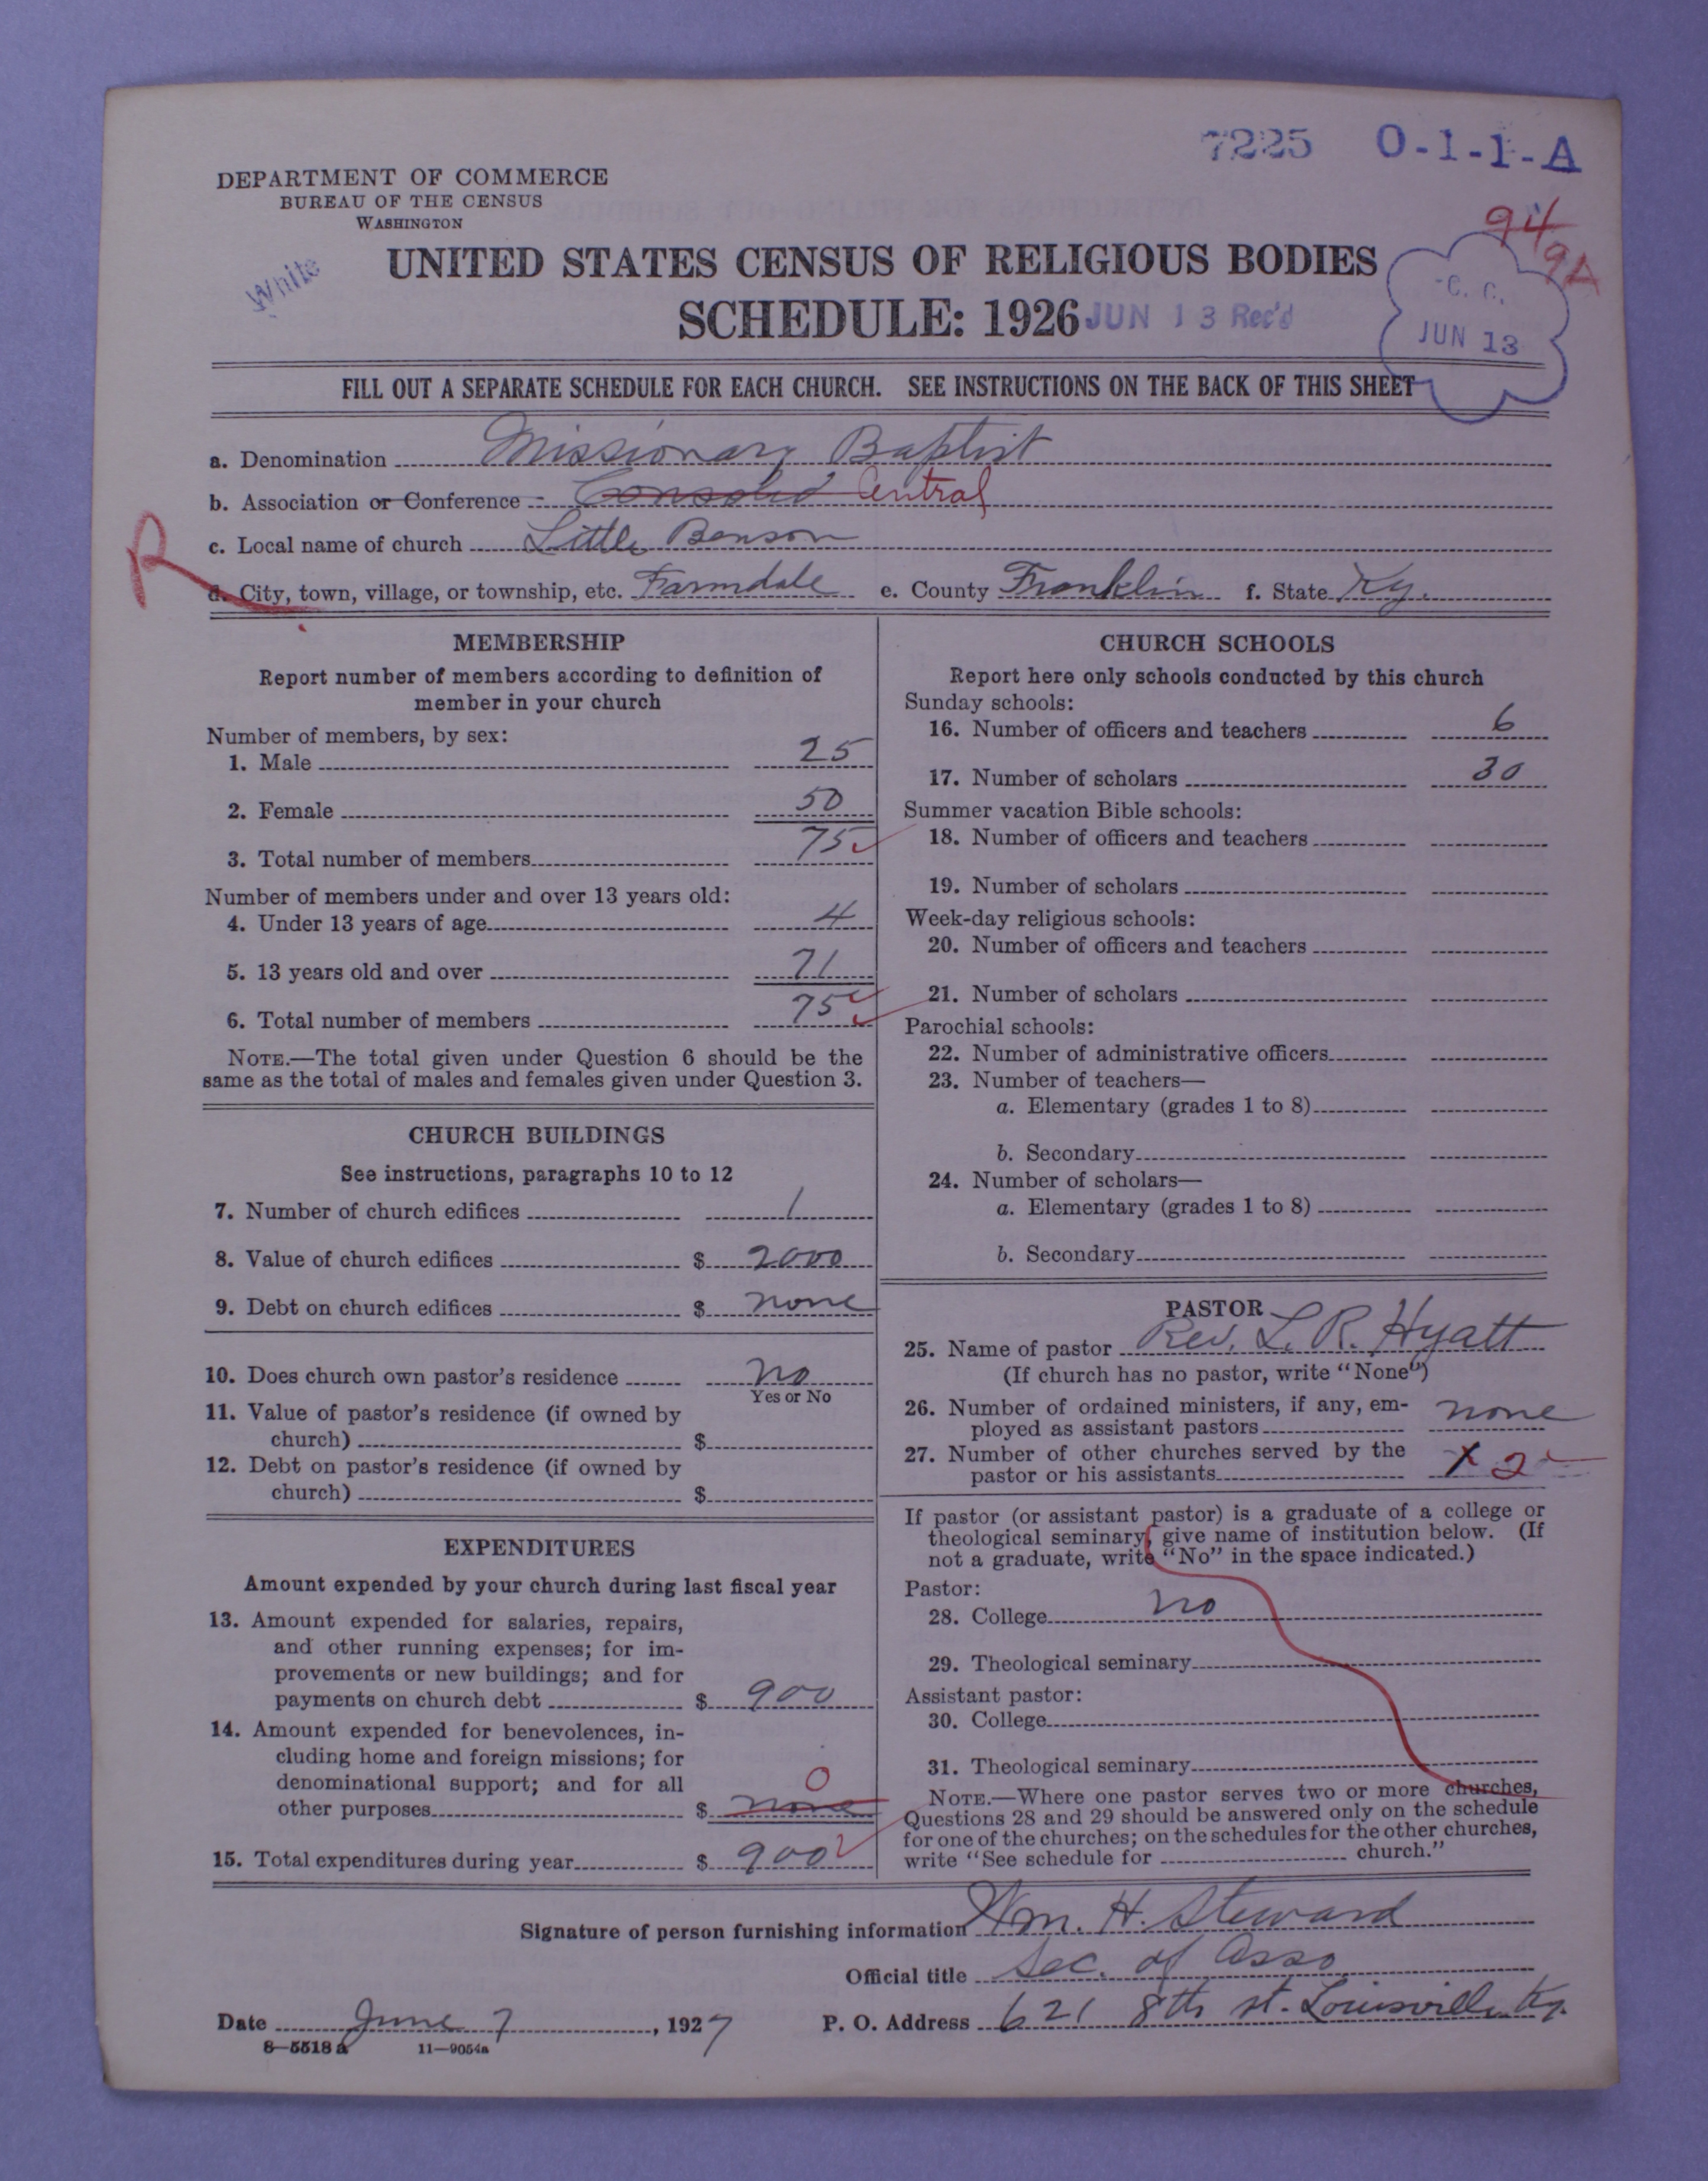 7225 O-1-1-A
DEPARTMENT OF COMMERCE
BUREAU OF THE CENSUS
WASHINGTON
94
9A
White
UNITED STATES CENSUS OF RELIGIOUS BODIES
SCHEDULE: 1926 JUN 13 Rec'd
C. C.
JUN 13
FILL OUT A SEPARATE SCHEDULE FOR EACH CHURCH. SEE INSTRUCTIONS ON THE BACK OF THIS SHEET
a. Denomination Missionary Baptist
b. Association or Conference Consolid Central
c. Local name of church Little Benson
R
d. City, town, village, or township, etc. Farmdale e. County Franklin f. State Ky.
MEMBERSHIP
Report number of members according to definition of
member in your church
Number of members, by sex:
1. Male 25
2. Female 50
3. Total number of members 75
Number of members under and over 13 years old:
4. Under 13 years of age 4
5. 13 years old and over 71
6. Total number of members 75
NOTE.—The total given under Question 6 should be the
same as the total of males and females given under Question 3.
CHURCH BUILDINGS
See instructions, paragraphs 10 to 12
7. Number of church edifices 1
8. Value of church edifices $ 2000
9. Debt on church edifices $ none
10. Does church own pastor's residence no
Yes or No
11. Value of pastor's residence (if owned by
church) $
12. Debt on pastor's residence (if owned by
church) $
EXPENDITURES
Amount expended by your church during last fiscal year
13. Amount expended for salaries, repairs,
and other running expenses; for im-
provements or new buildings; and for
payments on church debt $ 900
14. Amount expended for benevolences, in-
cluding home and foreign missions; for
denominational support; and for all 0
other purposes $ none
15. Total expenditures during year $ 900
CHURCH SCHOOLS
Report here only schools conducted by this church
Sunday schools:
16. Number of officers and teachers 6
17. Number of scholars 30
Summer vacation Bible schools:
18. Number of officers and teachers
19. Number of scholars
Week-day religious schools:
20. Number of officers and teachers
21. Number of scholars
Parochial schools:
22. Number of administrative officers
23. Number of teachers—
a. Elementary (grades 1 to 8)
b. Secondary
24. Number of scholars—
a. Elementary (grades 1 to 8)
b. Secondary
PASTOR
25. Name of pastor Rev. L. R. Hyatt
(If church has no pastor, write "None")
26. Number of ordained ministers, if any, em-
ployed as assistant pastors none
27. Number of other churches served by the
pastor or his assistants X 2
If pastor (or assistant pastor) is a graduate of a college or
theological seminary, give name of institution below. (If
not a graduate, write "No" in the space indicated.)
Pastor:
28. College no
29. Theological seminary
Assistant pastor:
30. College
31. Theological seminary
NOTE.—Where one pastor serves two or more churches,
Questions 28 and 29 should be answered only on the schedule
for one of the churches; on the schedules for the other churches,
write "See schedule for church."
Signature of person furnishing information Wm. H. Steward
Official title Sec. of Asso
Date June 7, 1927 P. O. Address 621 8th st. Louisville Ky.
8—5518 a 11—9054a